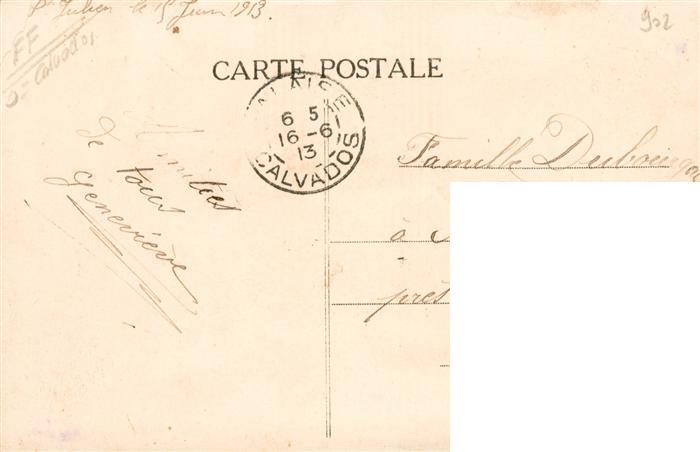 St Julien le 15 Juin 1913
902
FF
D = Calvados
CARTE POSTALE
6 5
16 - 6
13
CALVADOS
Amitiés
de
tous
Geneviève
Famille
à
près